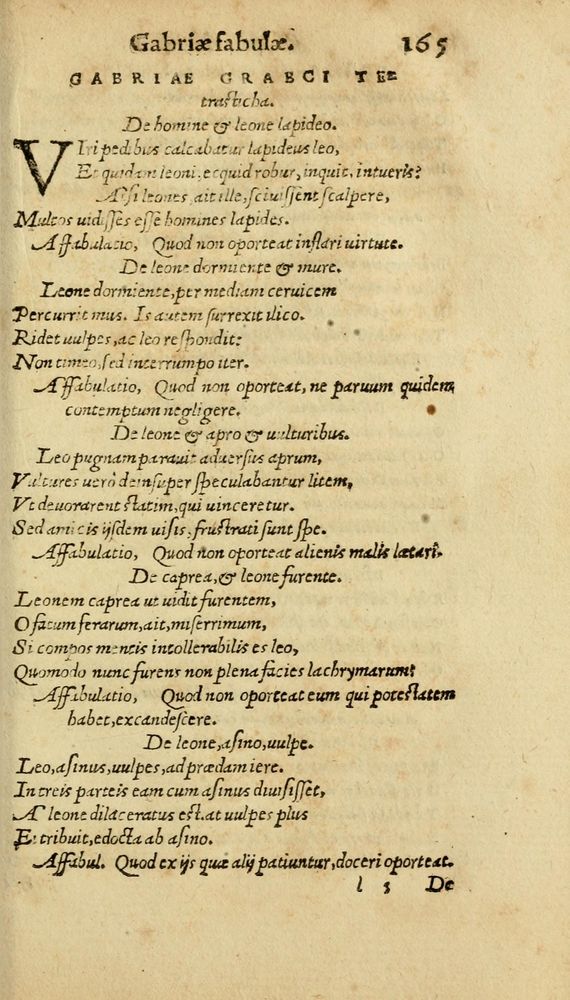 Gabriæ fabulæ. 165
GABRIAE GRAECI TE-
trasticha.
De homine & leone lapideo.
VIri pedibus calcabatur lapideus leo,
Et quidam leoni, ecquid robur, inquit, intueris?
At si leones, ait ille, sciuissent scalpere,
Multos uidisses esse homines lapides.
Affabulatio, Quod non oporteat inflari uirtute.
De leone dormiente & mure.
Leone dormiente, per mediam ceruicem
Percurrit mus. Is autem surrexit ilico.
Ridet uulpes, ac leo respondit:
Non timeo, sed interrumpo iter.
Affabulatio, Quod non oporteat, ne paruum quidem
contemptum negligere.
De leone & apro & uulturibus.
Leo pugnam parauit aduersus aprum,
Vultures uerò deinsuper speculabantur litem,
Vt deuorarent statim, qui uinceretur.
Sed amicis ijsdem uisis, frustrati sunt spe.
Affabulatio, Quod non oporteat alienis malis lætari.
De caprea, & leone furente.
Leonem caprea ut uidit furentem,
O fatum ferarum, ait, miserrimum,
Si compos mentis intollerabilis es leo,
Quomodo nunc furens non plena facies lachrymarum?
Affabulatio, Quod non oporteat eum qui potestatem
habet, excandescere.
De leone, asino, uulpe.
Leo, asinus, uulpes, ad prædam iere.
In treis parteis eam cum asinus diuisisset,
A leone dilaceratus est. at uulpes plus
Ei tribuit, edocta ab asino.
Affabul. Quod ex ijs quæ alij patiuntur, doceri oporteat.
l 3 De